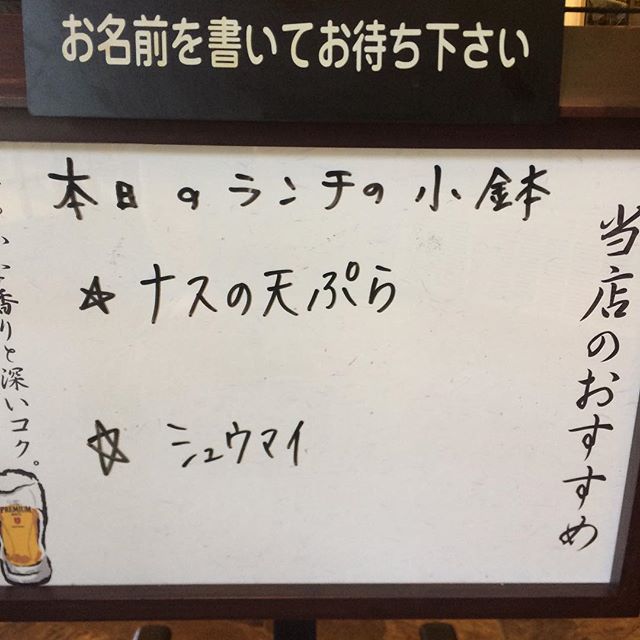 お名前を書いてお待ち下さい
本日のランチの小鉢
☆ ナスの天ぷら
☆ シュウマイ
当店のおすすめ
い香りと深いコク。
PREMIUM